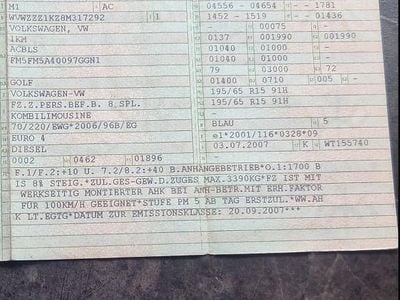 M1 AC 04556 - 04654 - - 1781
WVWZZZ1KZ8M317292 1 1452 - 1519 - 01436
VOLKSWAGEN, VW - 00075 - -
1KM 0137 001990 001990
ACBLS 01040 01000 -
FM5FM5A40097GGN1 01040 01000 -
79 03000 72
GOLF 01400 0710 005 -
VOLKSWAGEN-VW 195/65 R15 91H
FZ.Z.PERS.BEF.B. 8 SPL. 195/65 R15 91H
KOMBILIMOUSINE -
70/220/EWG*2006/96B/EG BLAU 5
EURO 4 e1*2001/116*0328*09
DIESEL 03.07.2007 K WT155740
0002 0462 01896 -
F.1/F.2:+10 U. 7.2/8.2:+40 B.ANHANGEBETRIEB*O.1:1700 B
IS 8% STEIG.*ZUL.GES-GEW.D.ZUGES MAX.3390KG*FZ IST MIT
WERKSEITIG MONTIERTER AHK BEI ANH-BETR.MIT ERH.FAKTOR
FÜR 100KM/H GEEIGNET*STUFE PM 5 AB TAG ERSTZUL.*WW.AH
K LT.EGTG*DATUM ZUR EMISSIONSKLASSE: 20.09.2007***